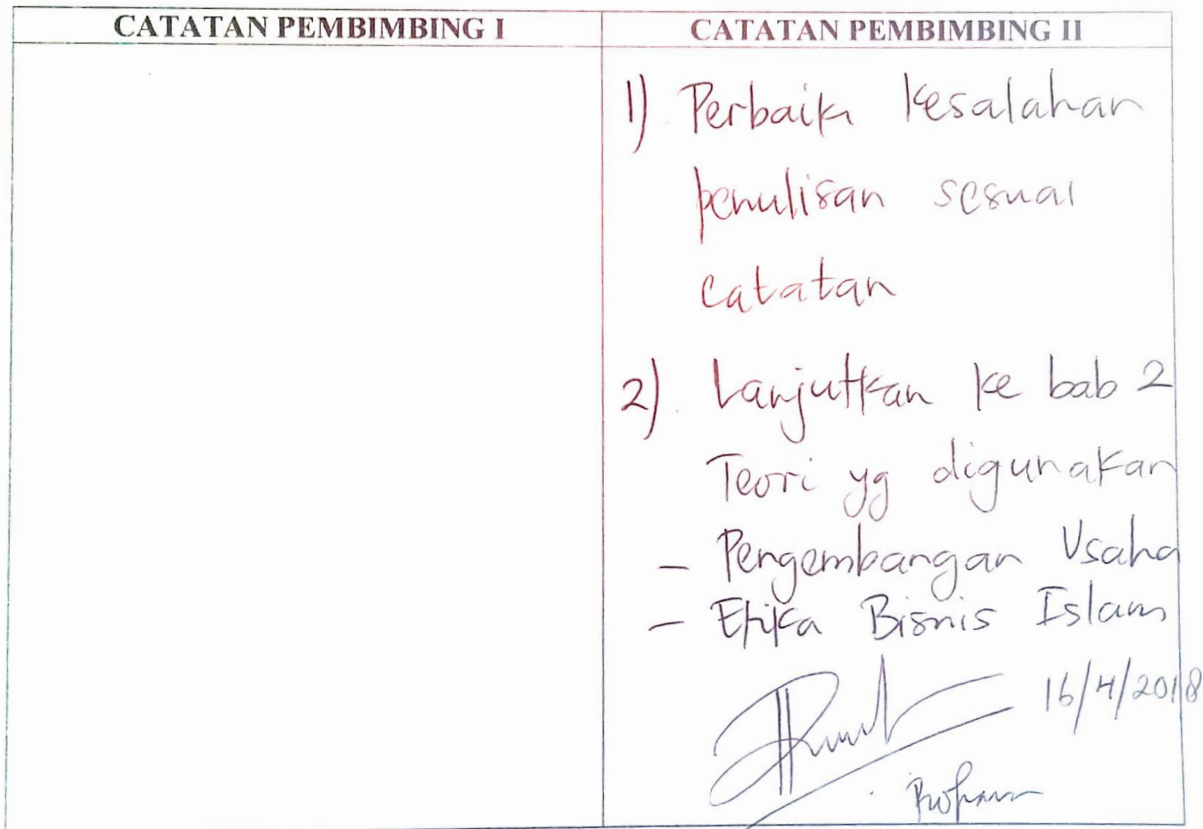 CATATAN PEMBIMBING I
CATATAN PEMBIMBING II
1) Perbaiki kesalahan
penulisan sesuai
catatan
2). Lanjutkan ke bab 2
Teori yg digunakan
- Pengembangan Usaha
- Etika Bisnis Islam
16/4/2018